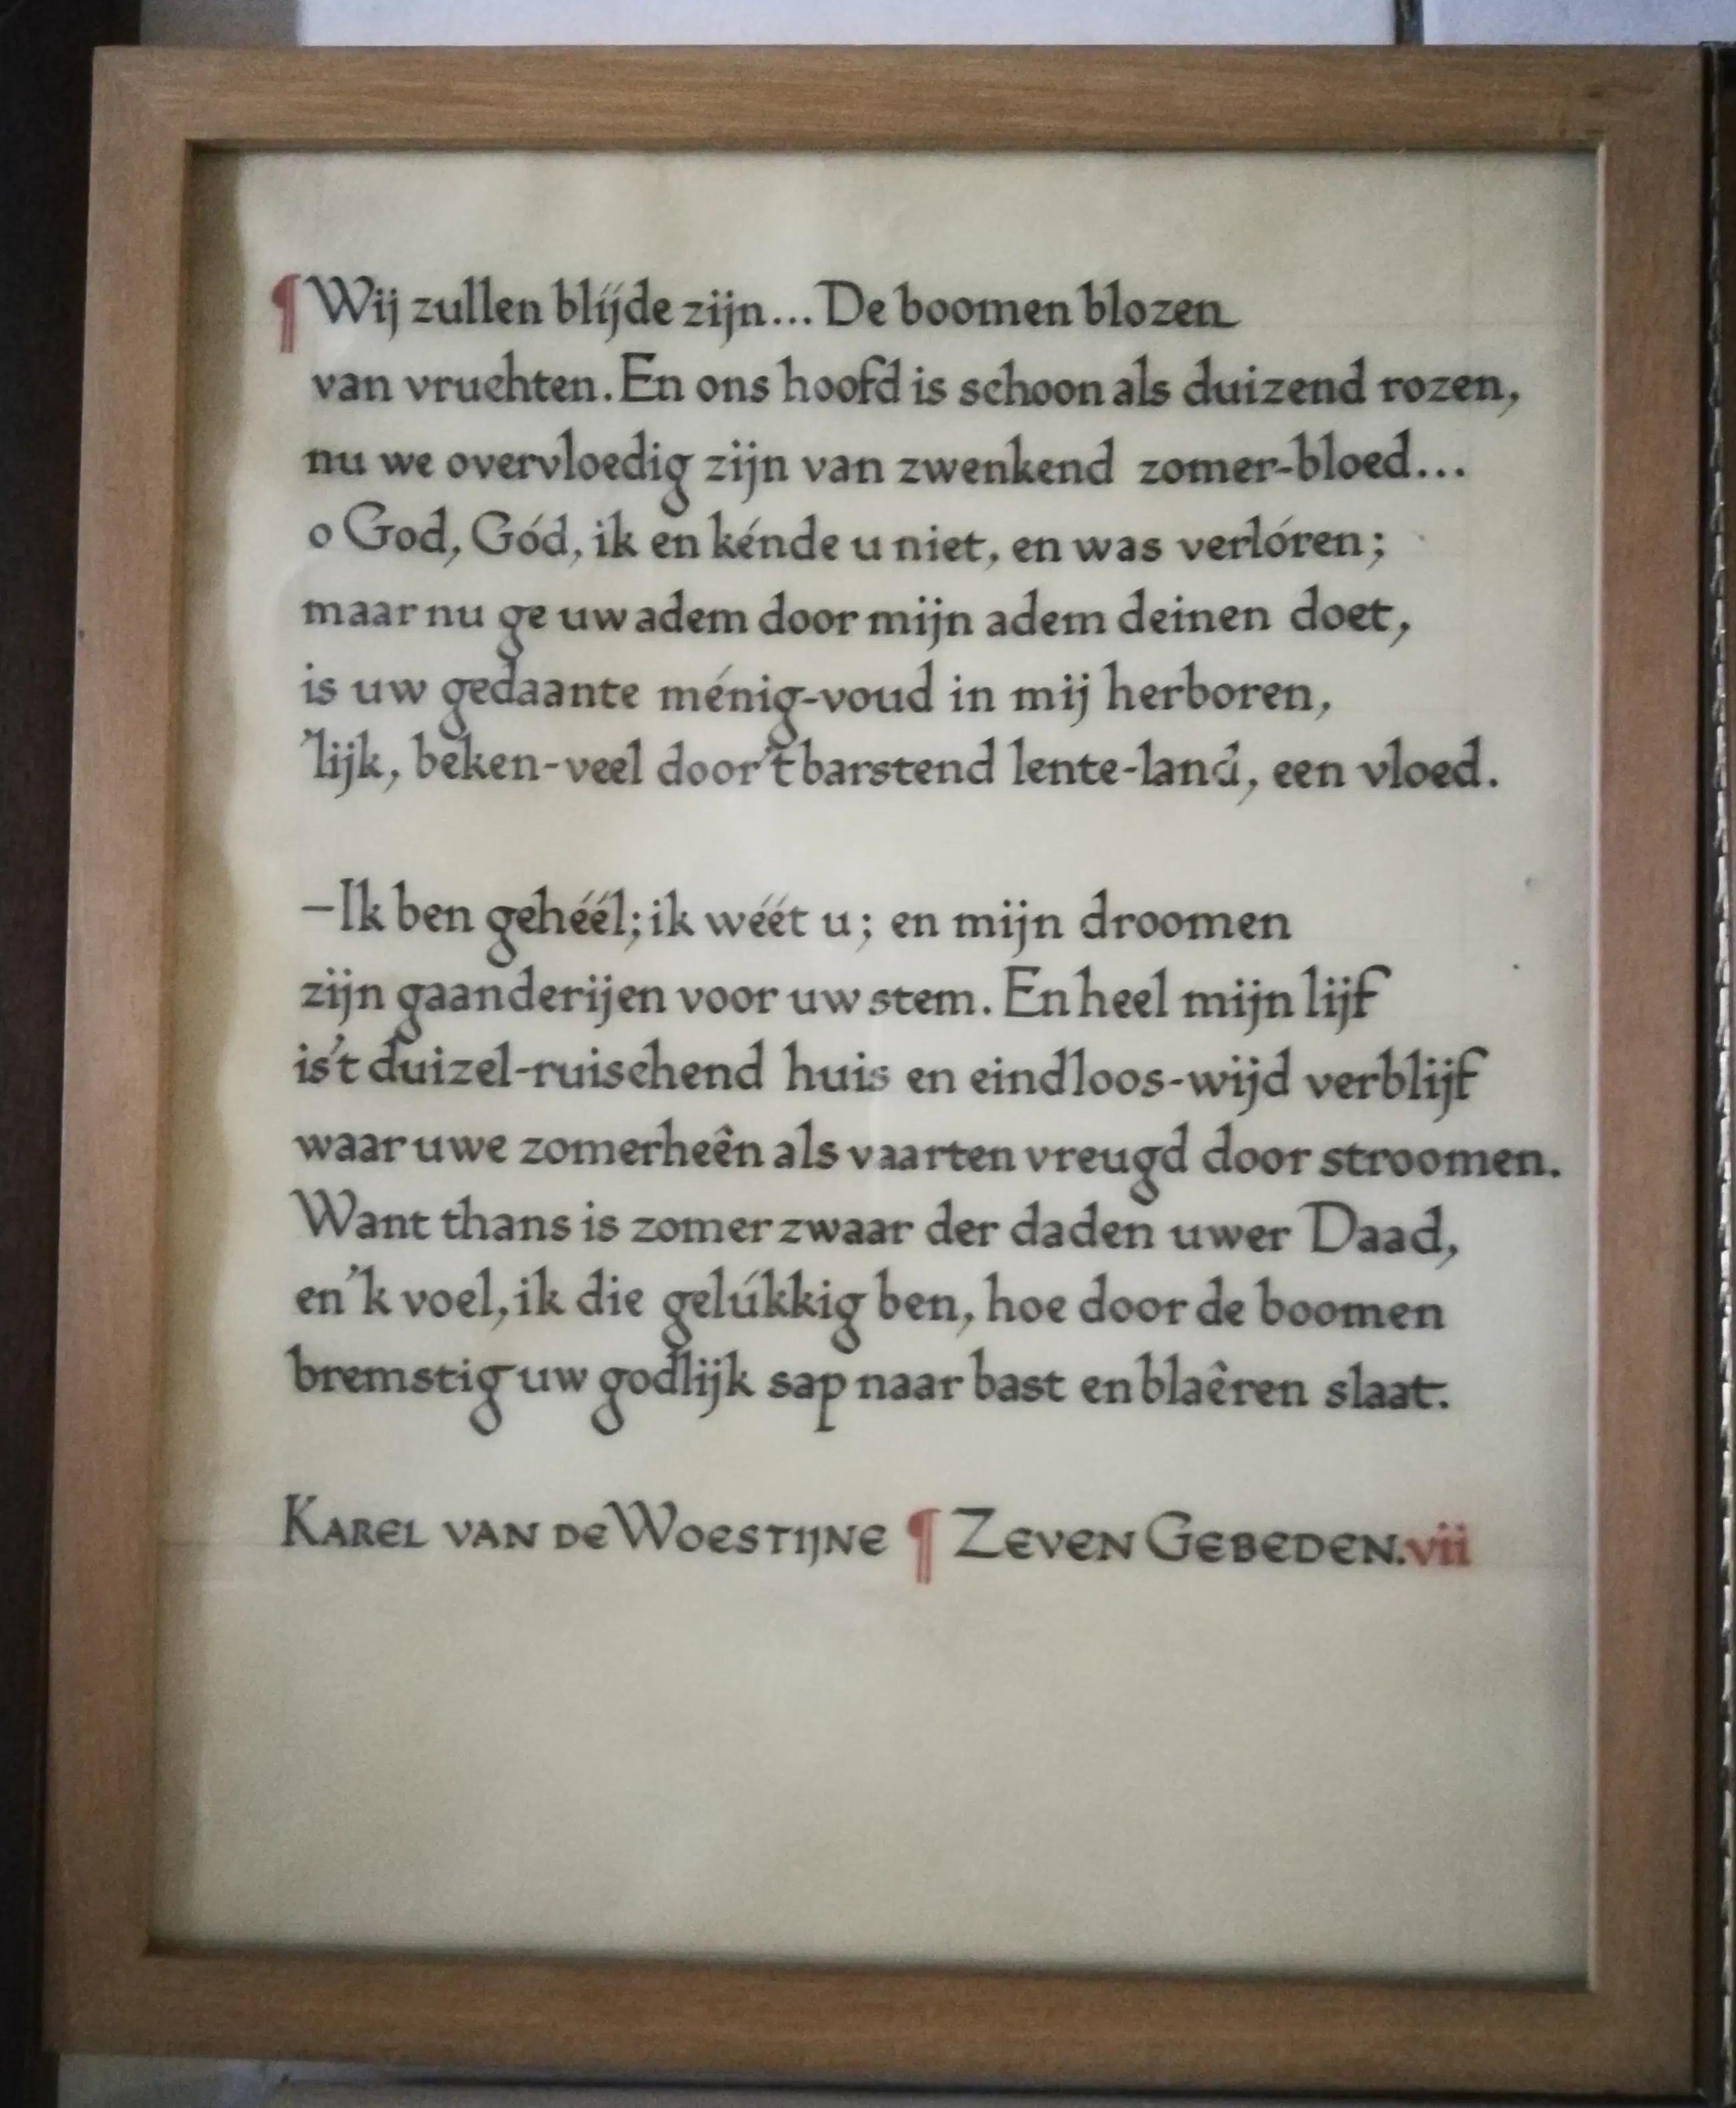 ¶ Wij zullen blijde zijn... De boomen blozen
van vruchten. En ons hoofd is schoon als duizend rozen,
nu we overvloedig zijn van zwenkend zomer-bloed...
o God, Gód, ik en kénde u niet, en was verlóren;
maar nu ge uw adem door mijn adem deinen doet,
is uw gedaante ménig-voud in mij herboren,
'lijk, beken-veel door 't barstend lente-land, een vloed.
—Ik ben gehéél; ik wéét u; en mijn droomen
zijn gaanderijen voor uw stem. En heel mijn lijf
is 't duizel-ruischend huis en eindloos-wijd verblijf
waar uwe zomerheên als vaarten vreugd door stroomen.
Want thans is zomer zwaar der daden uwer Daad,
en 'k voel, ik die gelúkkig ben, hoe door de boomen
bremstig uw godlijk sap naar bast en blaêren slaat.
Karel van de Woestijne ¶ Zeven Gebeden. vii